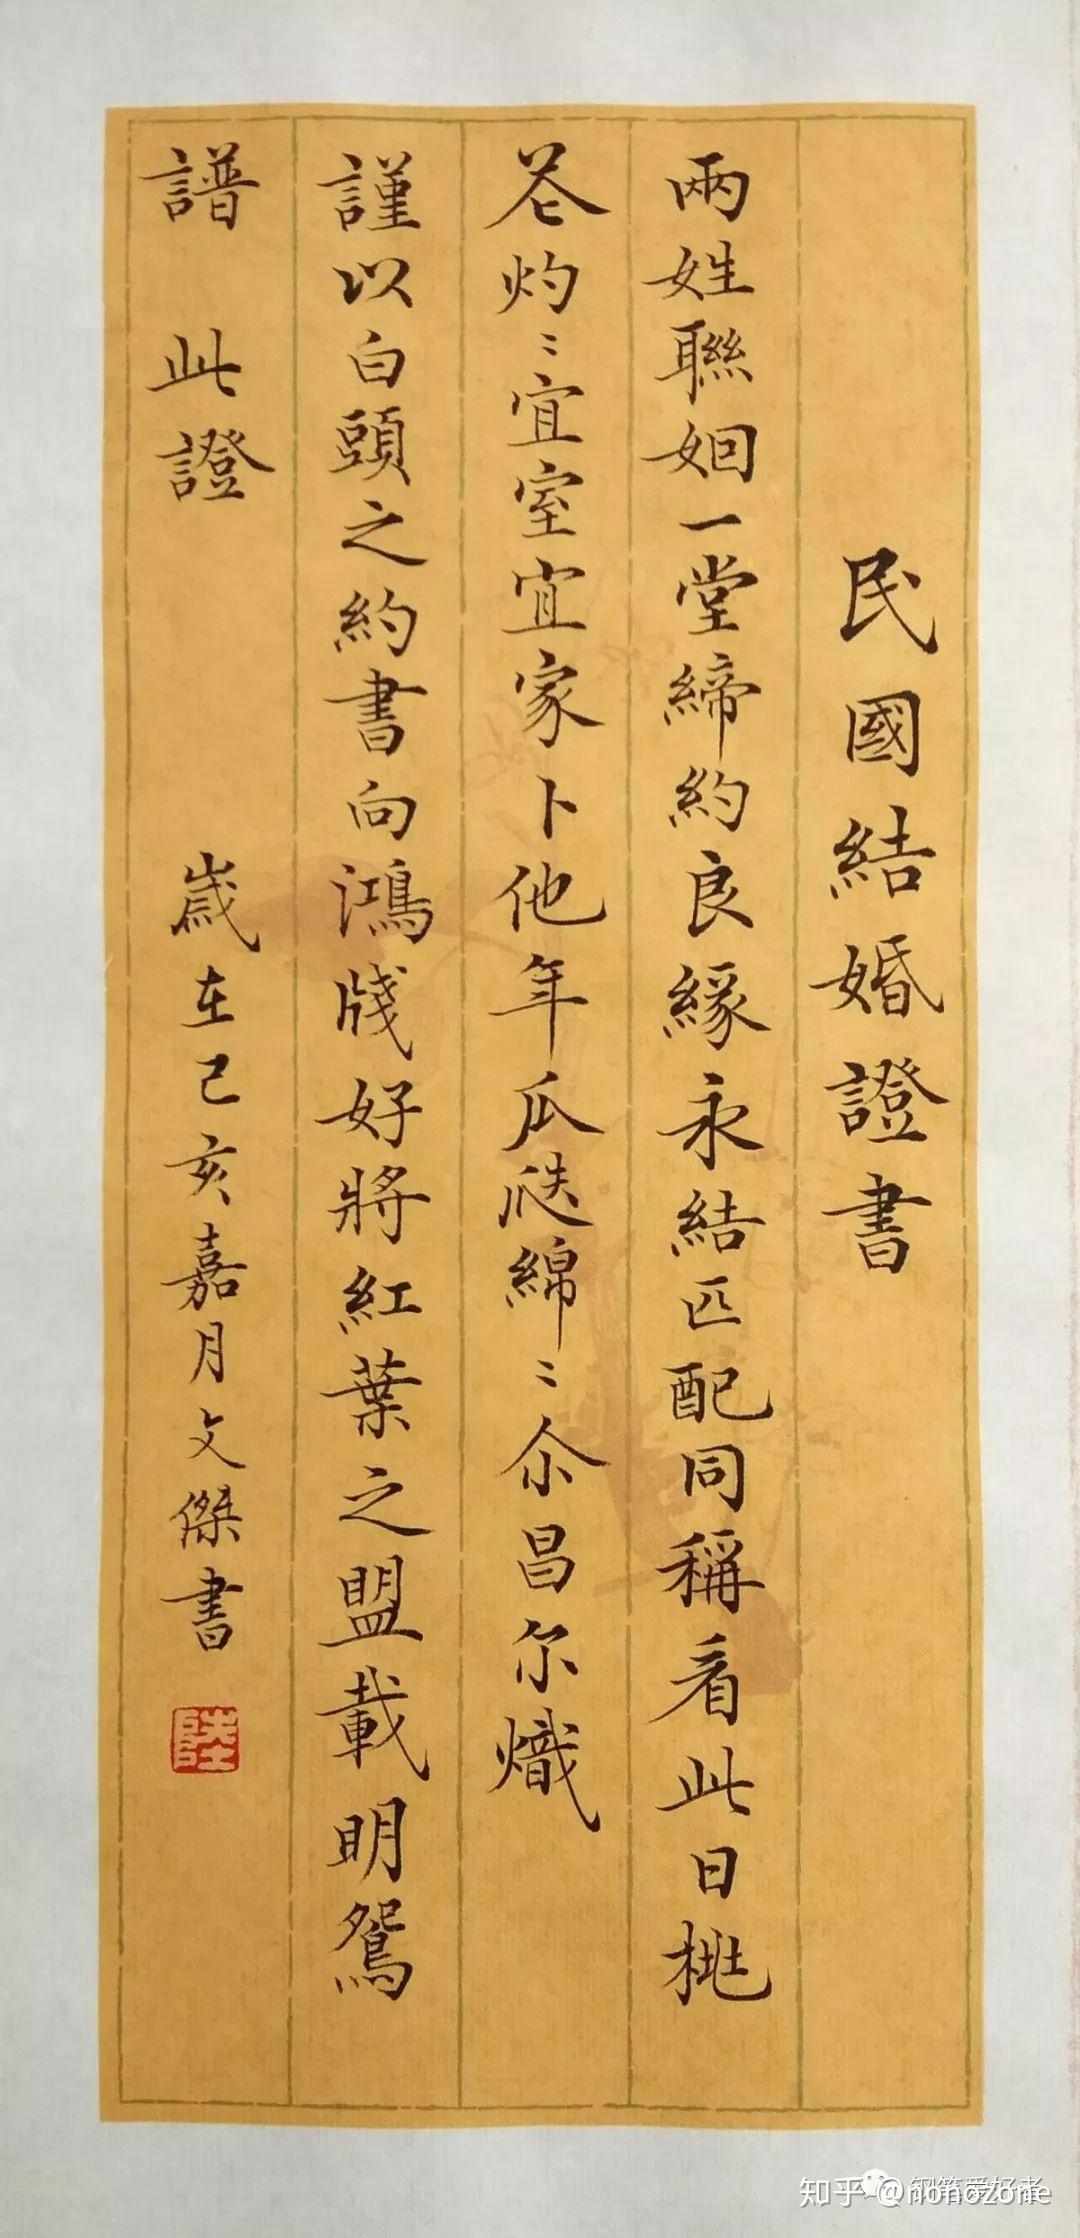 民國結婚證書
兩姓聯姻一堂締約良緣永結匹配同稱看此日桃
花灼〻宜室宜家卜他年瓜瓞綿〻尒昌尔熾
謹以白頭之約書向鴻牋好將紅葉之盟載明鴛
譜 此證
歲在己亥嘉月文傑書
陸
知乎 @nonozone
钢笔爱好者